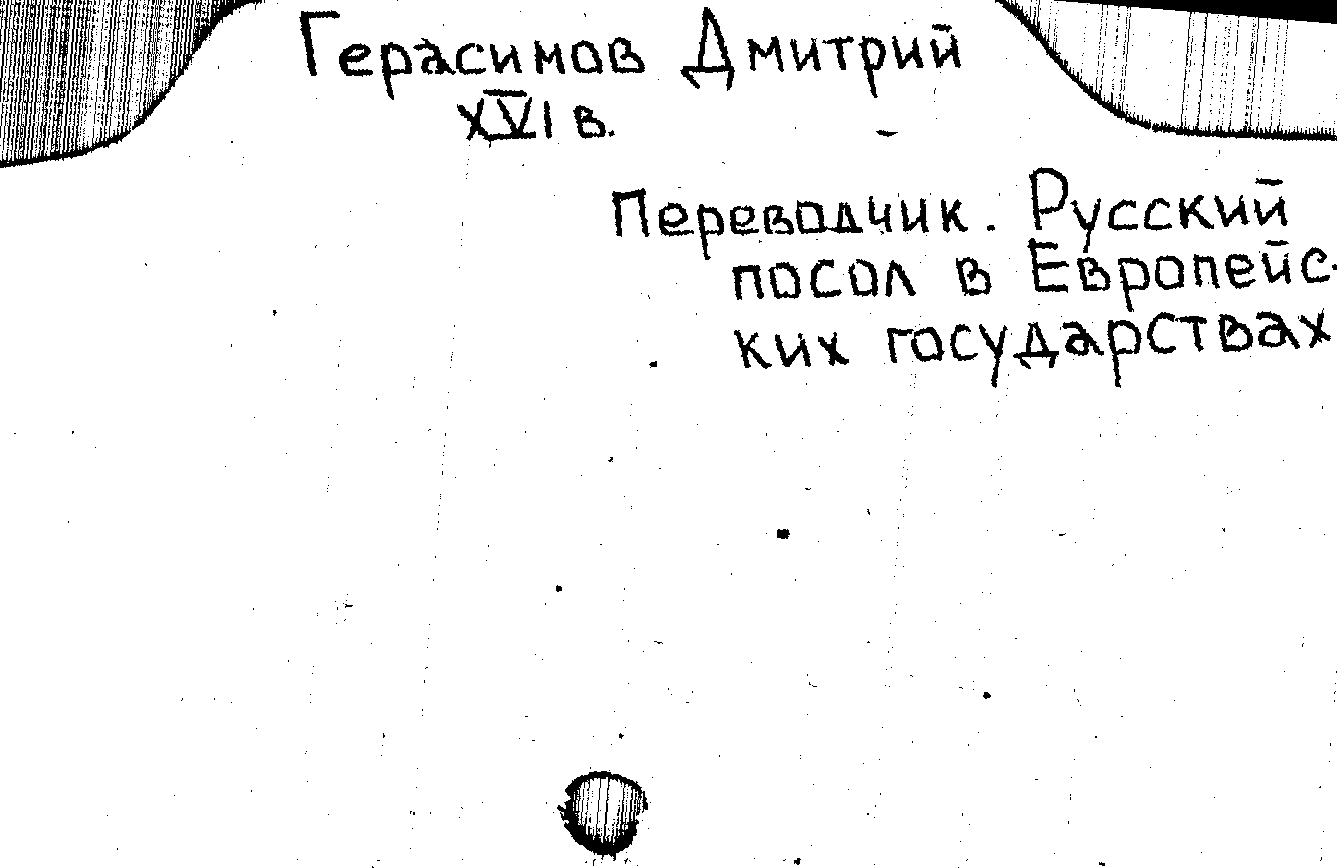 Герасимов Дмитрий
XVI в.
Переводчик. Русский
посол в Европейс-
ких государствах